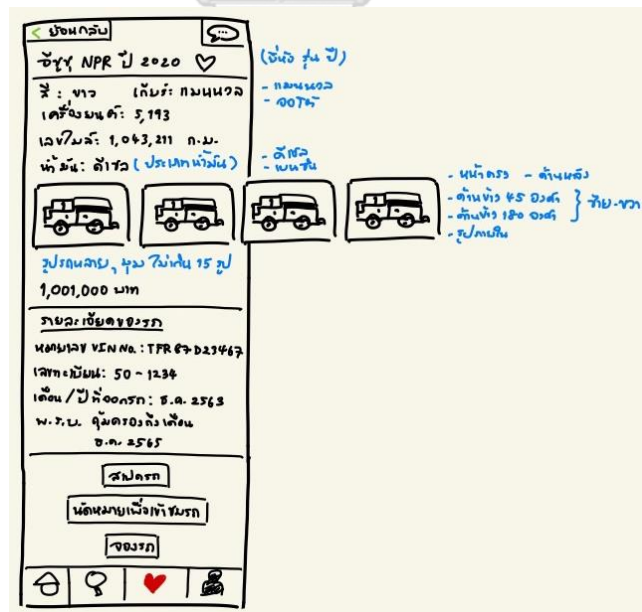 < ย้อนกลับ
อีซูซุ NPR ปี 2020
(ยี่ห้อ รุ่น ปี)
สี : ขาว เกียร์: แมนนวล
- แมนนวล
- ออโต้
เครื่องยนต์: 5,193
เลขไมล์: 1,043,211 ก.ม.
น้ำมัน: ดีเซล (ประเภทน้ำมัน)
- ดีเซล
- เบนซิน
- หน้าตรง - ด้านหลัง
- ด้านข้าง 45 องศา
- ด้านข้าง 180 องศา } ซ้าย-ขวา
- รูปภายใน
รูปรถหลายๆ มุม ไม่เกิน 15 รูป
1,001,000 บาท
รายละเอียดของรถ
หมายเลข VIN No. : TFR87D23467
เลขทะเบียน: 50 - 1234
เดือน / ปี ที่ออกรถ : ธ.ค. 2563
พ.ร.บ. คุ้มครองถึงเดือน
ธ.ค. 2565
สเปครถ
นัดหมายเพื่อเข้าชมรถ
จองรถ